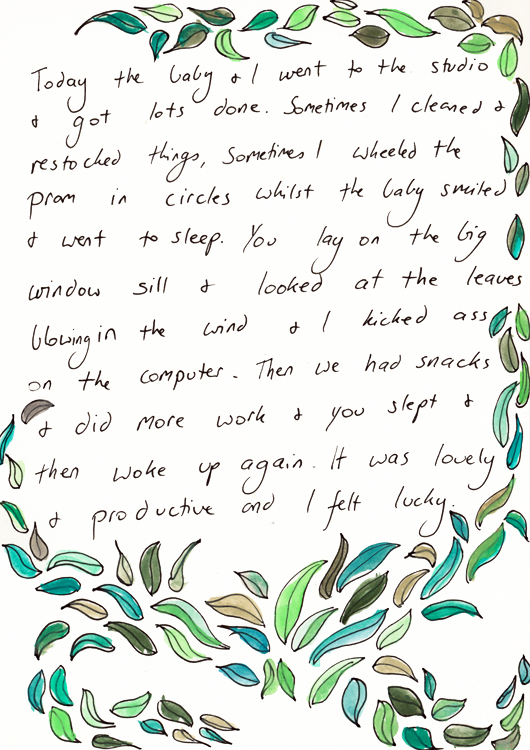 Today the baby & I went to the studio
& got lots done. Sometimes I cleaned &
restocked things, Sometimes I wheeled the
pram in circles whilst the baby smiled
& went to sleep. You lay on the big
window sill & looked at the leaves
blowing in the wind & I kicked ass
on the computer. Then we had snacks
& did more work & you slept &
then woke up again. It was lovely
& productive and I felt lucky.